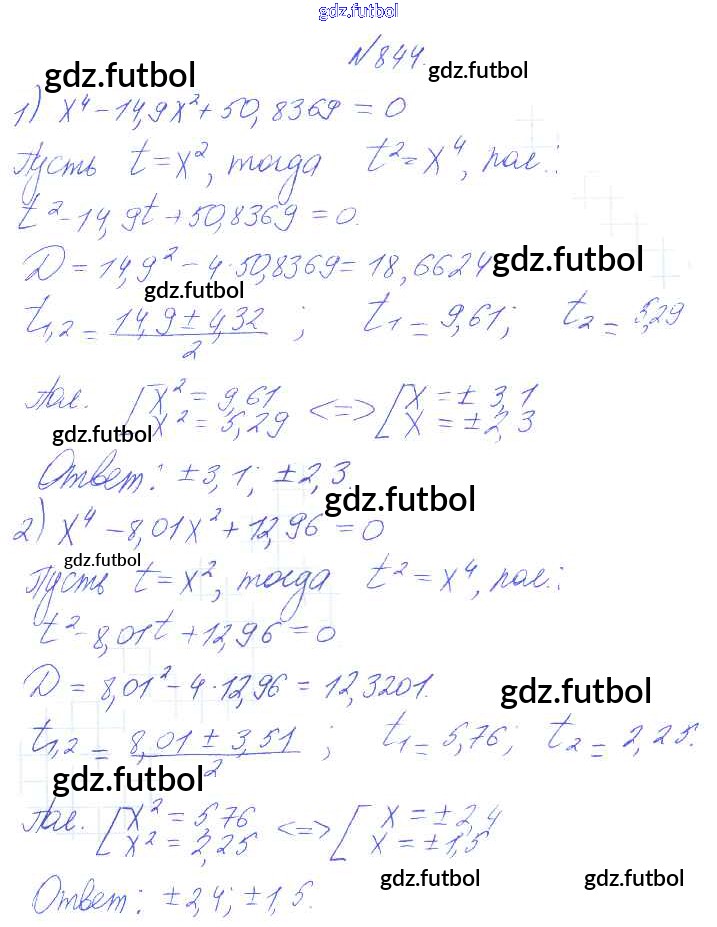 gdz.futbol
№844.
gdz.futbol gdz.futbol
1) x⁴ - 14,9x² + 50,8369 = 0
Пусть t = x², тогда t² = x⁴, пол.:
t² - 14,9t + 50,8369 = 0.
D = 14,9² - 4·50,8369 = 18,6624
gdz.futbol
gdz.futbol
t₁,₂ = (14,9 ± 4,32)/2 ; t₁ = 9,61; t₂ = 5,29
Пол. [x² = 9,61 <=> [x = ± 3,1
x² = 5,29 x = ± 2,3
gdz.futbol
Ответ: ±3,1; ±2,3.
gdz.futbol
2) x⁴ - 8,01x² + 12,96 = 0
gdz.futbol
Пусть t = x², тогда t² = x⁴, пол.:
t² - 8,01t + 12,96 = 0
D = 8,01² - 4·12,96 = 12,3201.
gdz.futbol
t₁,₂ = (8,01 ± 3,51)/2 ; t₁ = 5,76; t₂ = 2,25.
gdz.futbol
Пол. [x² = 5,76 <=> [x = ±2,4
x² = 2,25 x = ±1,5
gdz.futbol gdz.futbol
Ответ: ±2,4; ±1,5.